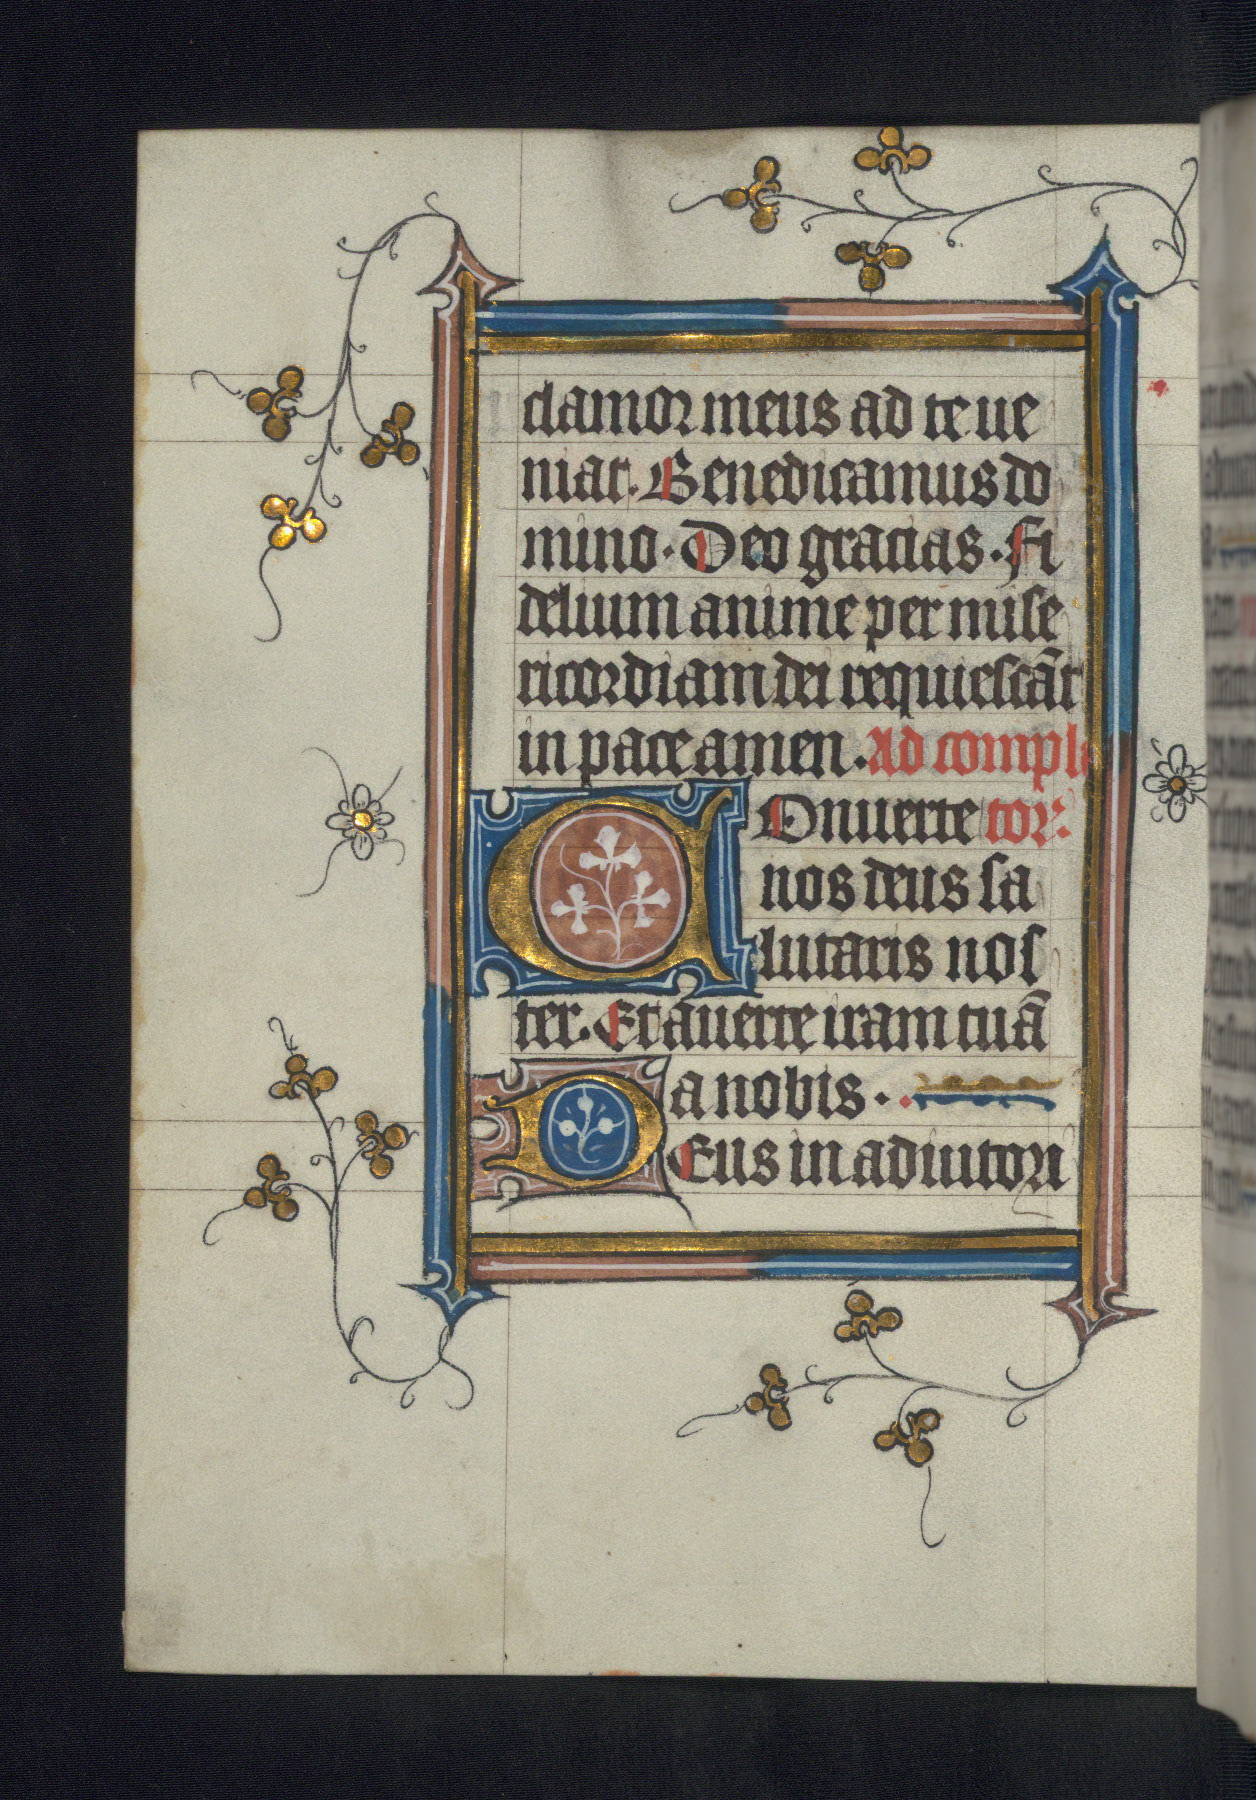 clamor meus ad te ue
niat. Benedicamus do
mino. Deo gracias. Fi
delium anime per mise
ricordiam dei requiescāt
in pace amen. Ad comple
Conuerte tor.
nos deus sa
lutaris nos
ter. Et auerte iram tuā
a nobis.
Deus in adiutori